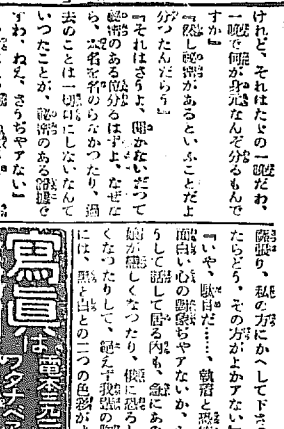 けれど、それはたゞの一晩だわ、
一晩で何が身元なんぞ分るもんで
すか』
『然し秘密があるといふことだよ
分つたんだらう』
『それはさうよ、聞かないだつて
秘密のある位分るはずよ、なぜな
ら、本名を名のらなかつたり、過
去のことは一切口にしないなんて
いつたことが、秘密のある証拠で
すわ、ねえ、さうぢやアない』
張り、私の方にかへして下さ
たらどう、その方がよかアない』
『いや、駄目だ……、執着と恐
面白い心の對象ぢやアないか、
うして話して居る内も、急にあの
娘が戀しくなつたり、
くなつたりして、絶えず我輩の
には、黑と白との二つの色彩が
寫眞は
ワタナベ